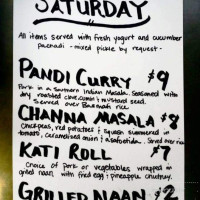 SATURDAY
All items served with fresh yogurt and cucumber
pachadi - mixed pickle by request -
PANDI CURRY $9
Pork in a Southern Indian Masala seasoned with
dry roasted clove, cumin & mustard seed.
Served over Basmati rice
CHANNA MASALA $8
Chickpeas, red potatoes & squash simmered in
tomato, caramelized onion & asafoetida. Served over rice
KATI ROLL $7
Choice of Pork or vegetables wrapped in
grilled naan with fried egg & pineapple chutney.
GRILLED NAAN $2